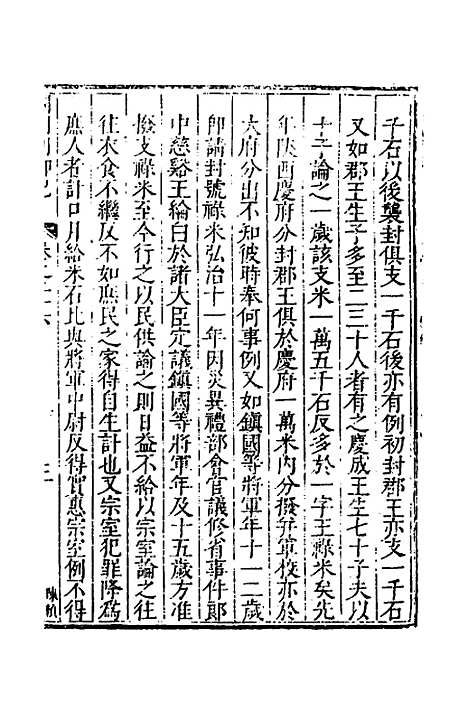 千石以後襲封俱支一千石後亦有例初封郡王亦支一千石
又如郡王生子多至二三十人者有之慶成王生七十子夫以
十子論之一歲該支米一萬五千石反多於一字王祿米矣先
年陜西慶府分封郡王俱於慶府一萬米內分撥并軍校亦於
大府分出不知彼時奉何事例又如鎮國等將軍年十一二歲
即請封號祿米弘治十一年因災異禮部會官議修省事件郎
中慈谿王綸白於諸大臣定議鎮國等將軍年及十五歲方准
撥支祿米至今行之以民供論之則日益不給以宗室論之往
往衣食不繼反不如庶民之家得自生計也又宗室犯罪降為
庶人者計口月給米石比與將軍中尉反得實惠宗室例不得